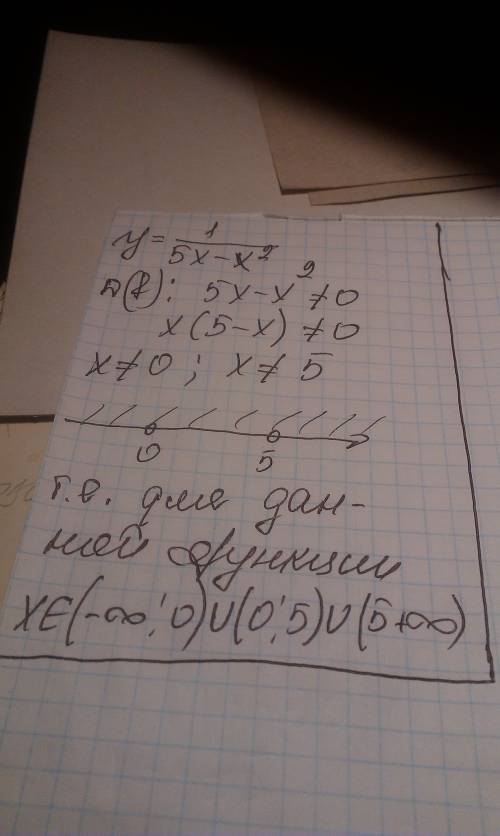 y = 1/(5x - x²)
D(f): 5x - x² ≠ 0
x(5 - x) ≠ 0
x ≠ 0 ; x ≠ 5
0 5
т.е. для дан-
ной функции
X∈(-∞; 0)∪(0; 5)∪(5 +∞)